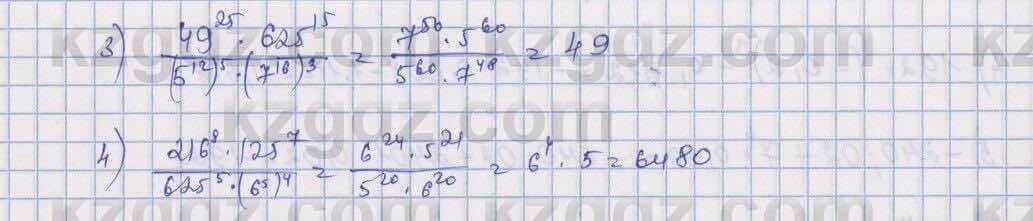 3) 49^25 · 625^15 / (5^12)^5 · (7^16)^3 = 7^50 · 5^60 / 5^60 · 7^48 = 49
4) 216^8 · 125^7 / 625^5 · (6^5)^4 = 6^24 · 5^21 / 5^20 · 6^20 = 6^4 · 5 = 6480
kzgdz.com